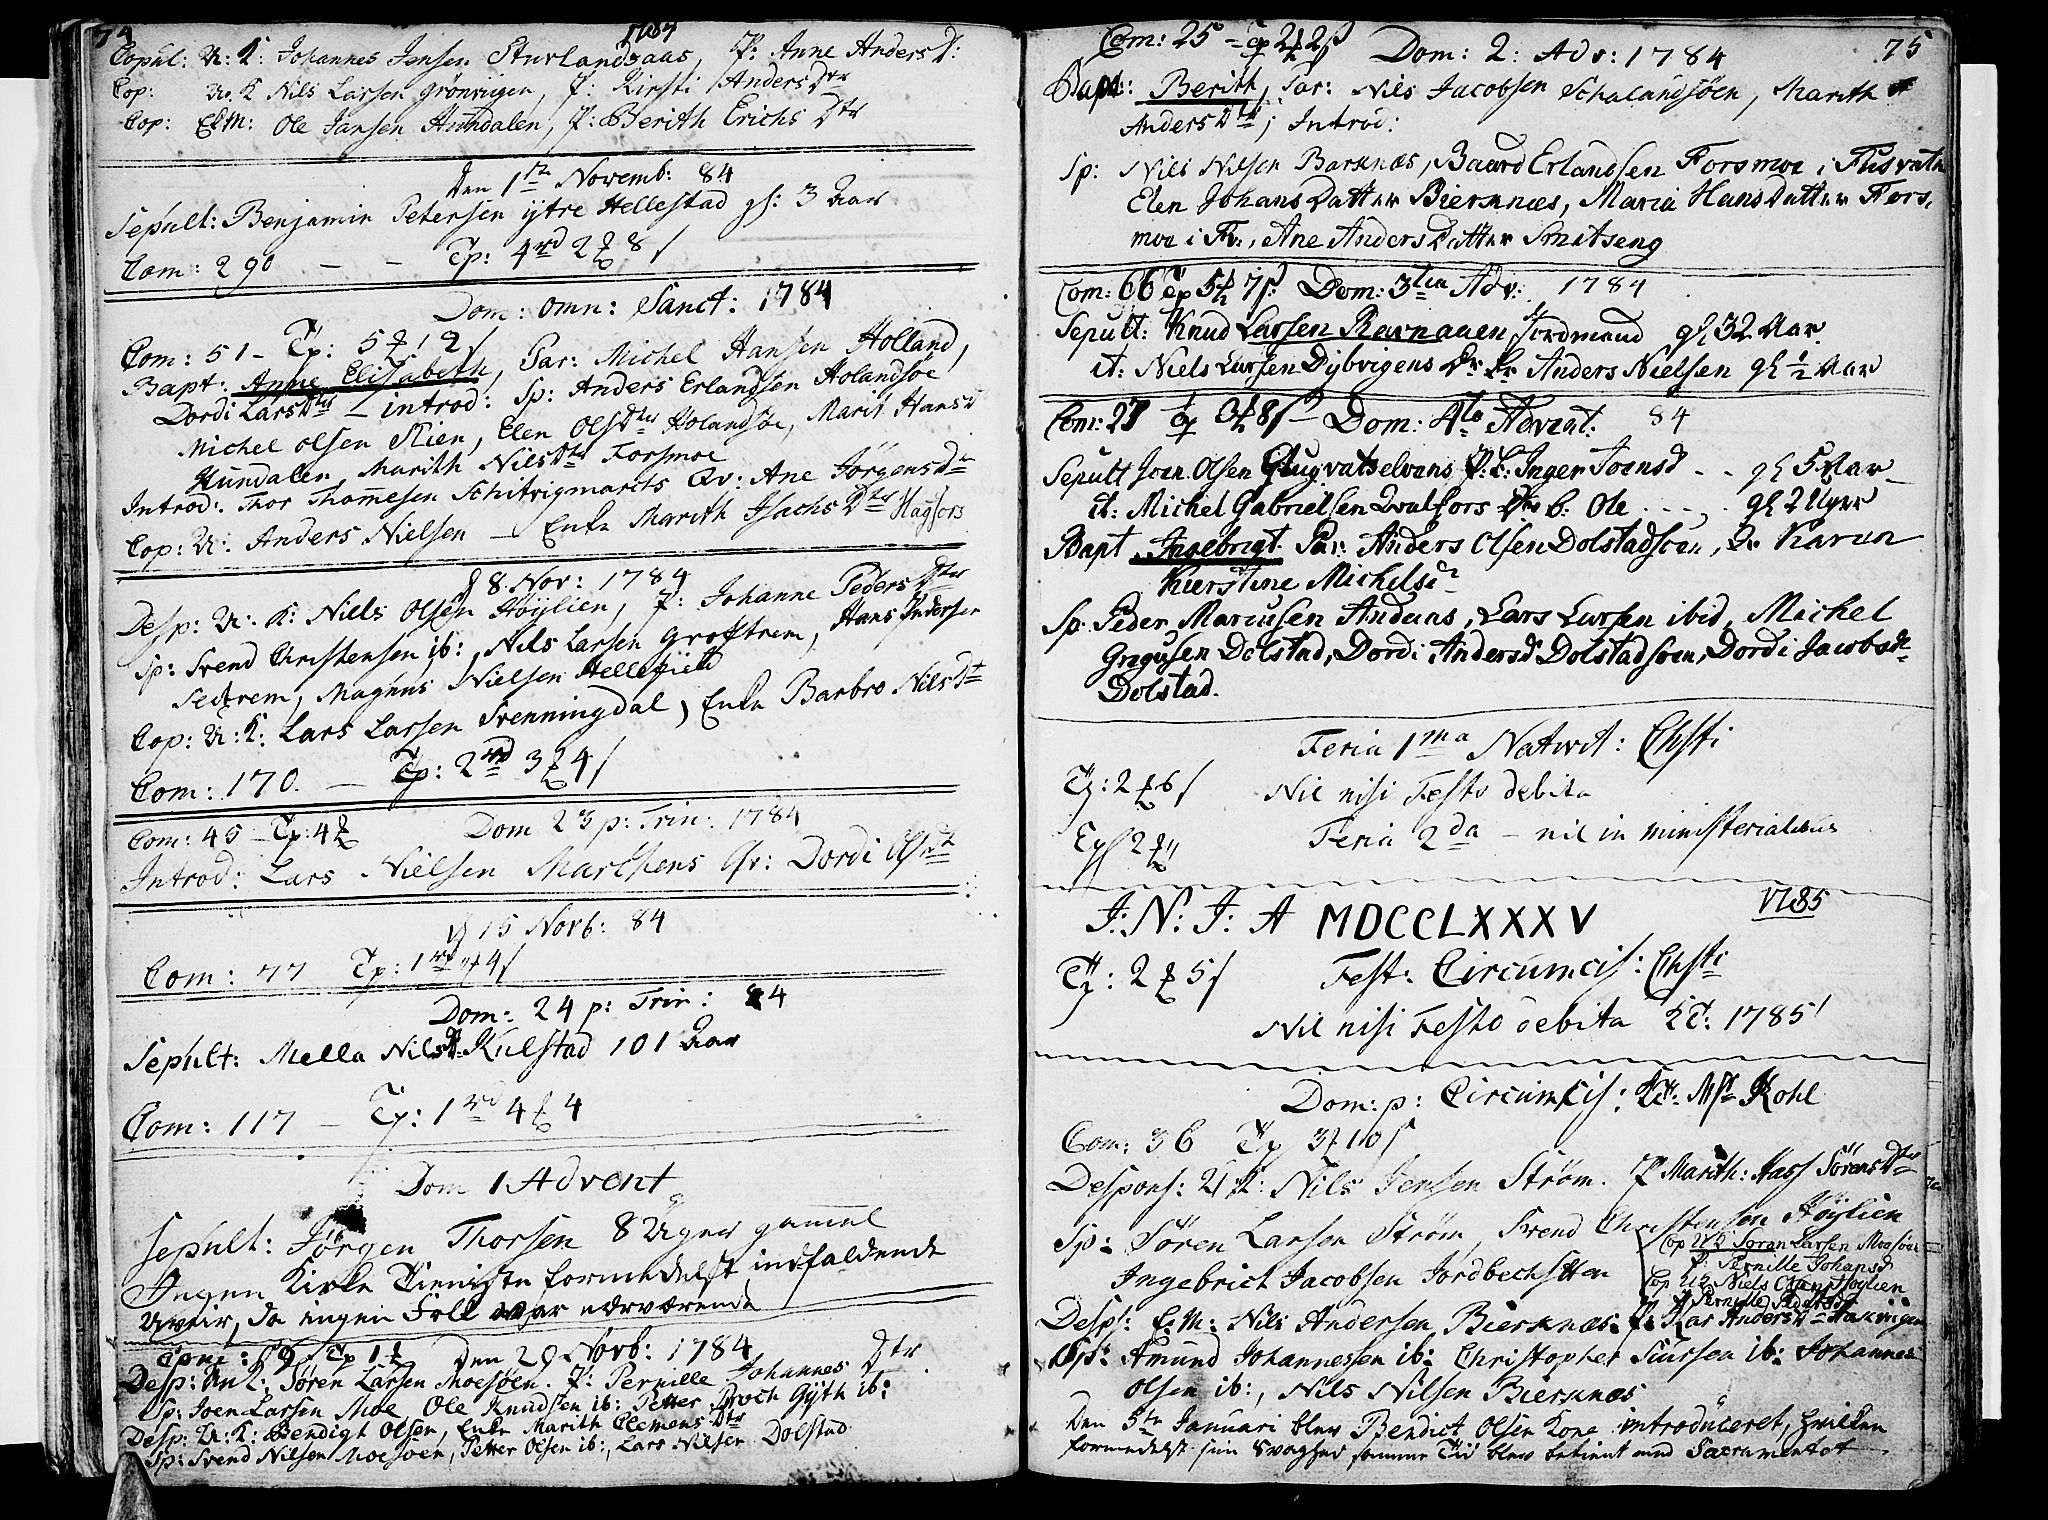 74
1784
Copul: U: K: Johannes Jensen Sturlandsaas, P: Anne Anders D:
Cop: U. K Nils Larsen Grønvigen, P: Kirsti Anders Dtr
Cop: EM: Ole Jansen Hundalen, P: Berith Erichs Dtr
Den 1te Novemb: 84
Sepult: Benjamin Petersen ÿtre Hellestad gl: 3 Aar
Com: 290 - - Tp: 4rd 2 8 s
Dom: omn: Sanct: 1784
Com: 51 - Tp: 5 12 s
Bapt: Anne Elisabeth, Par: Michel Hansen Holland,
Dordi Lars Dtr introd: Sp: Anders Erlandsen Holandsøe
Michel Olsen Stien, Elen Ols Dtr Holandsøe, Marit Hans D
Hundalen, Marith Nils Dtr Forsmoe
Introd: Thor Thomesen Schitrigmarets Qv: Ane Jørgens Dtr
Cop: U: Anders Nielsen - Enke Marith Isachs Dtr Hagfors
d 8 Nov: 1784
Desp: U: K: Niels Olsen Høÿlien, P: Johanne Peders Dtr
Sp: Svend Christensen ib:, Nils Larsen Groftrem, Hans Andersen
Seftrem, Magnus Nielsen Hellefield
Cop: U: K: Lars Larsen Svenningdal, Enke Barbro Nils Dtr
Com: 170. - Tp: 2rd 3 4 s
Com: 45 - Tp: 4 Dom 23 p: Trin: 1784
Introd: Lars Nielsen Marthens Qv: Dordi Ols Dtr
d 15 Novb: 84
Com: 77 Tp: 1rd " 4 s
Dom: 24 p: Trin: 84
Sepult: Mella Nilsd Kulstad 101 Aar
Com: 117 - Tp: 1rd 4 4
Dom 1 Advent
Sepult: Jørgen Thorsen 8 Uger gamel
Ingen Kirke Tieniste formedelst indfaldende
Uveir, da ingen Folk var nærværende
Den 29 Novb: 1784
Desp: Un K: Søren Larsen Moesøen. P: Pernille Johannes Dtr
Sp: Joen Larsen Moe Ole Knudsen ib: Petter Broch Gÿth ib:
Desp: U: K: Bendigt Olsen, Enke Marith Clemens Dtr
Sp: Svend Nilsen Moesøen, Petter Olsen ib:, Lars Nilsen Dolstad
Com: 25 - Tp 2 2 s Dom: 2: Adv: 1784 75
Bapt: Berith, Par: Nils Jacobsen Schalandsøen, Marith
Anders Dtr; Introd:
Sp: Niels Nilsen Barknæs, Baard Erlandsen Forsmoe i Fusvatn
Elen Johans Datter Bierknæs, Maria Hans Datter Fors,
moe i Fv:, Ane Anders Datter Smitseng
Com: 66 Tp 5 7 s: Dom: 3tia Adv: 1784
Sepult: Knud Larsen Ravnaaen, Jordmand gl 32 Aar
it: Niels Larsen Dÿbvigens Anders Nielsen gl ½ Aar
Com: 27 Tp 3 8 s - Dom: 4ta Advent: 84
Sepult Joen Olsen Glugvatselvens P. B. Inger Joensd - - gl 5 Aar
it: Michel Gabrielsen Qvalfors Dr b: Ole . . . gl 2 Uger
Bapt Ingebrigt. Par: Anders Olsen Dolstadsøen, Karen
Kierstine Michelsd
Sp: Peder Marcusen Andaas, Lars Larsen ibid, Michel
Gregusen Dolstad, Dordi Andersd Dolstadsøen, Dordi Jacobsd
Dolstad.
Feria 1ma Nativit: Chsti
Tp: 2 6 s Nil nisi Festo debita
Tp 2 " Feria 2da - nil in ministerialibus
J: N: J: A MDCCLXXXV 1785
Tp: 2 5 s Fest: Circumcis: Chsti
Nil nisi Festo debita 1785
Dom: p: Circumcis: Kohl
Com: 36 Tp 3 10 s
Despons: U K: Nils Jensen Strøm. P Marith: Hass Sørens Dtr
Sp: Søren Larsen Strøm, Svend Christensen Høÿlien
Ingebrict Jacobsen Jordbechstten
Cop U K Søran Larsen Moesøen
P: Pernille Johansd
Cop U K Niels Olsen Høglien
Pernille Pedersd
Desp: E: M: Nils Andersen Bierknæs: P. Kar Anders D
Sp: Amund Johannessen ib: Christopher Siursen ib: Johannes
Olsen ib:, Nils Nilsen Bierknæs
Den 5te Januari blev Bendict Olsen Kone introduceret, hvilken
formedelst sin Svaghed samme Tid blev betient med Sacramentet